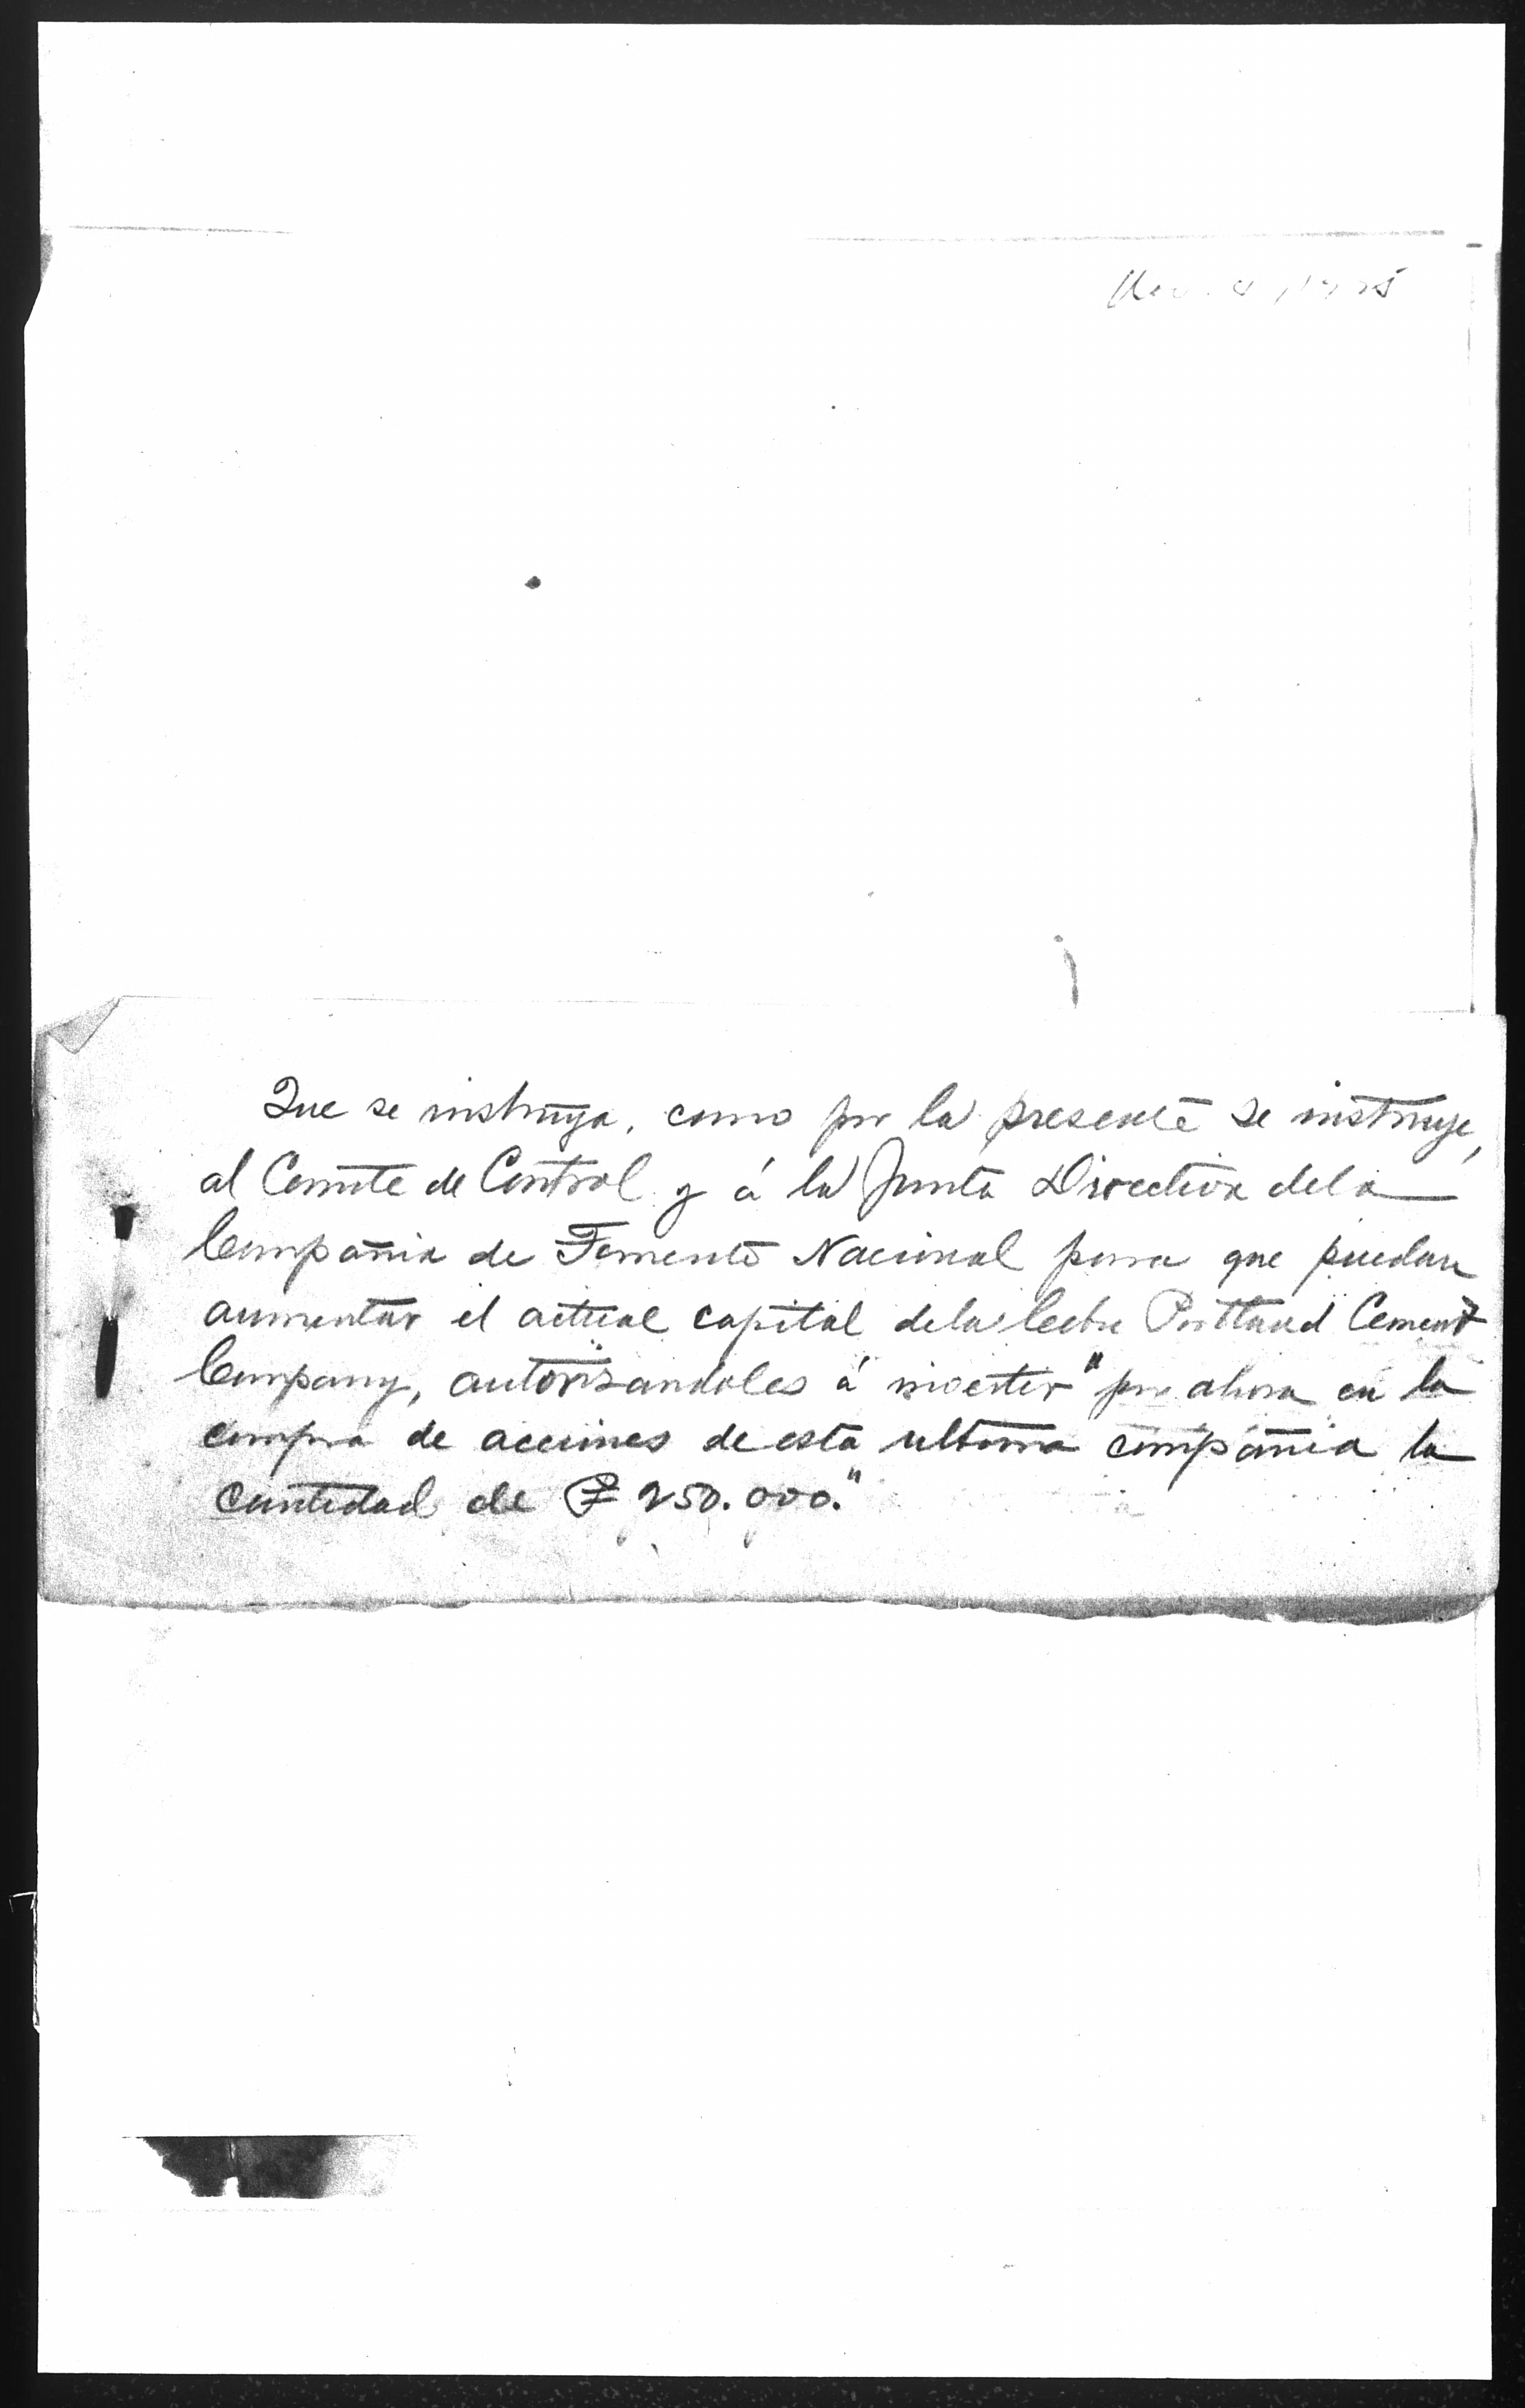 Que se instruya, como por la presente se instruye,
al Comite de Control y á la Junta Directiva de la
Compañia de Fomento Nacional para que puedan
aumentar el actual capital de la Cebu Portland Cement
Company, autorizandoles á invertir "por ahora en la
compra de acciones de esta ultima compañia la
cantidad de ₱ 250.000."